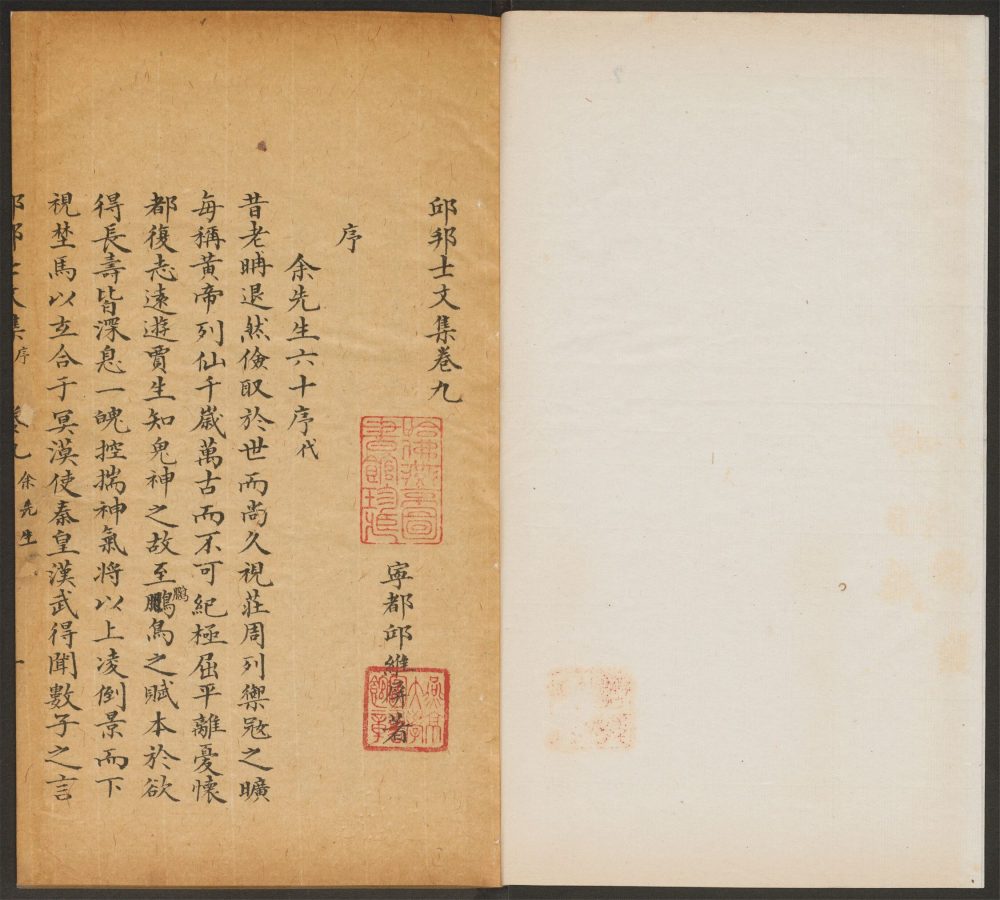 邱邦士文集卷九
寧都邱維屏著
哈佛燕京圖
書館珍藏
序
余先生六十序代
昔老聃退然儉取於世而尚久視莊周列禦冦之曠
每稱黃帝列仙千歲萬古而不可紀極屈平離憂懷
都復志遠遊賈生知鬼神之故至鵩鳥之賦本於欲
鵩
得長壽皆深息一魄控揣神氣將以上凌倒景而下
視埜馬以玄合于冥漠使秦皇漢武得聞數子之言
邱邦士文集序 卷九 余先生 一